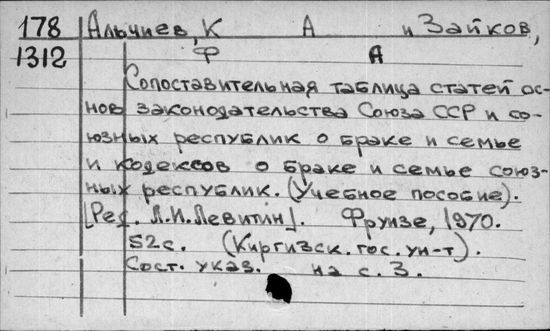 178 Альчиев, К А и Зайков,
1312 Ф А
Сопоставительная таблица статей ос-
нов законодательства Союза ССР и со-
юзных республик о браке и семье
и кодексов о браке и семье союз-
ных республик. (Учебное пособие).
[Ред. Л.И.Левитин]. Фрунзе, 1970.
52с. (Киргизск. гос. ун-т).
Сост. указ. на с. 3.